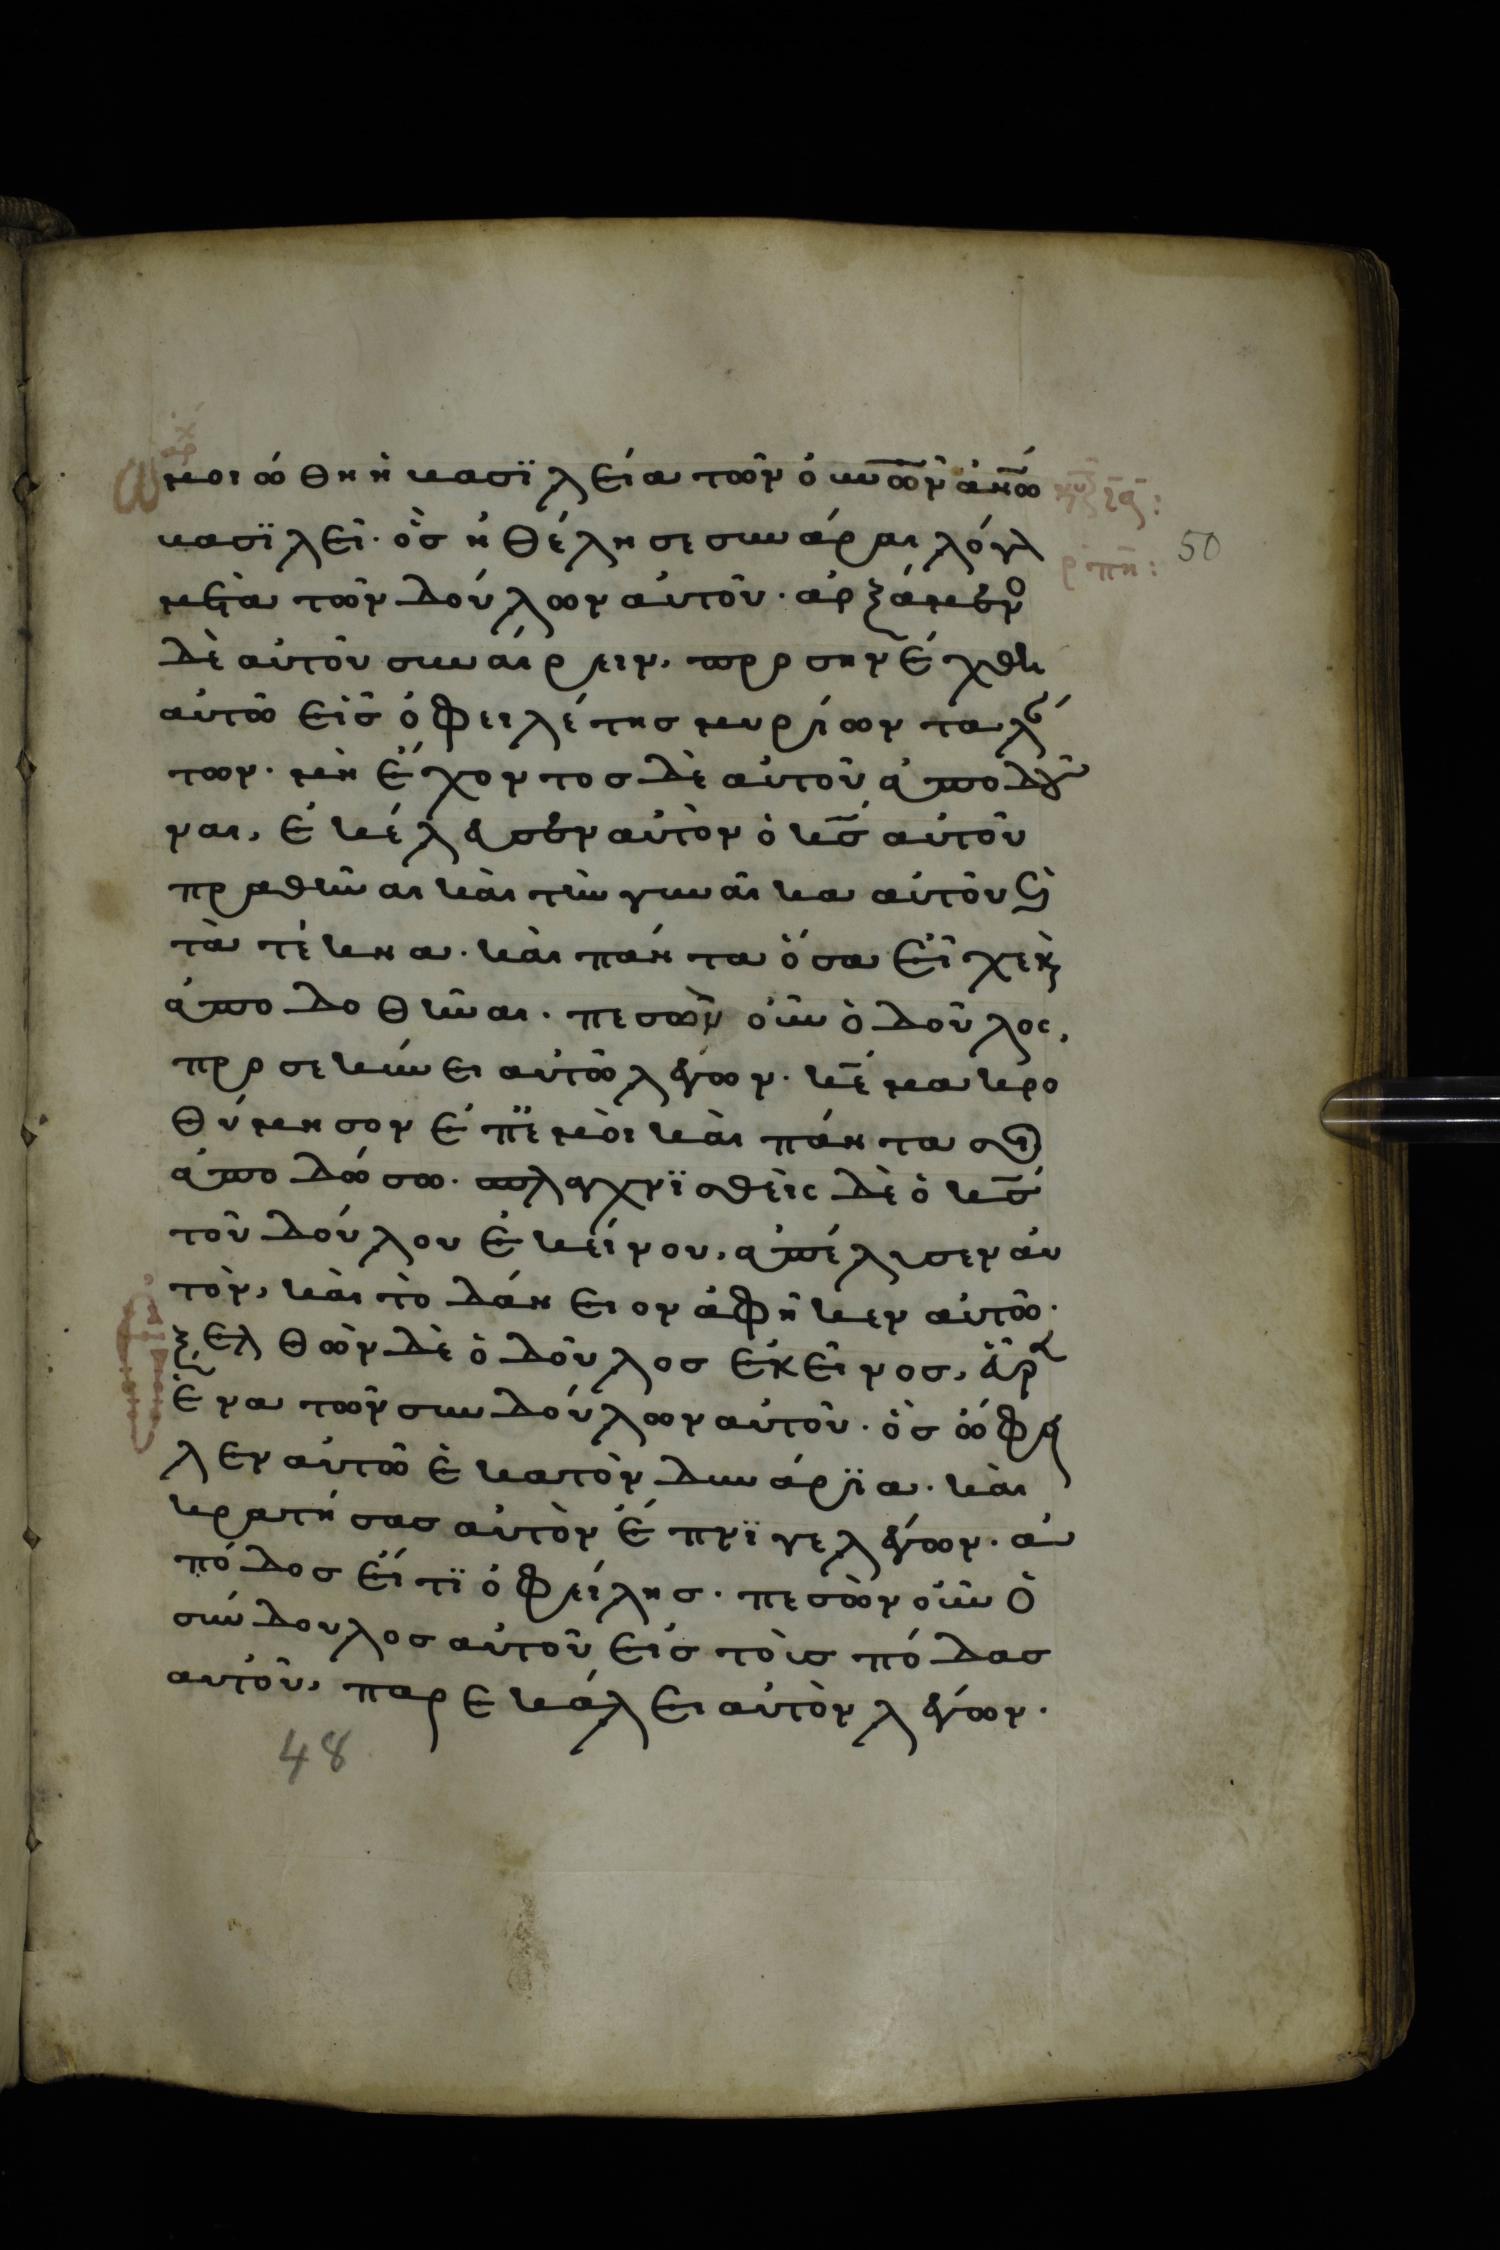 ὡμοιώθη ἡ βασϊλεία τῶν οὐ̅ν̅ω̅ν̅ ἀν̅ω̅
βασϊλεῖ· ὃς ἠθέλησε συνάραι λόγον
μετὰ τῶν δούλων αὐτοῦ· ἀρξάμενου
δὲ αὐτοῦ συναίρειν, προσηνέχθη
αὐτῶ εἷς ὀφειλέτης μυρίων ταλάν
των· μὴ ἔχοντος δὲ αὐτοῦ ἀποδοῦ
ναι, ἐκέλευσεν αὐτὸν ὁ κ̅ς̅ αὐτοῦ
πραθῆναι καὶ τὴν γυναῖκα αὐτοῦ καὶ
τὰ τέκνα· καὶ πάντα ὅσα εἶχε καὶ
ἀποδοθῆναι· πεσὼν οὖν ὁ δοῦλος,
προσεκύνει αὐτῶ λέγων· κ̅ε̅ μακρο
θύμησον ἐπ' ἐμοὶ καὶ πάντα σοι
ἀποδώσω· σπλαγχνϊσθεὶς δὲ ὁ κ̅ς̅
τοῦ δούλου ἐκείνου, ἀπέλυσεν αὐ
τὸν, καὶ τὸ δάνειον ἀφῆκεν αὐτῶ·
ἐξελθὼν δὲ ὁ δοῦλος ἐκεῖνος, εὗρεν
ἕνα τῶν συνδούλων αὐτοῦ· ὃς ὤφει
λεν αὐτῶ ἑκατὸν δηνάρϊα· καὶ
κρατήσας αὐτὸν ἔπνϊγε λέγων· ἀ
πόδος εἴ τϊ ὀφείλης· πεσὼν οὖν ὁ
σύνδουλος αὐτοῦ εἰς τοὺς πόδας
αὐτοῦ, παρεκάλει αὐτὸν λέγων·
ρπη:
50
48